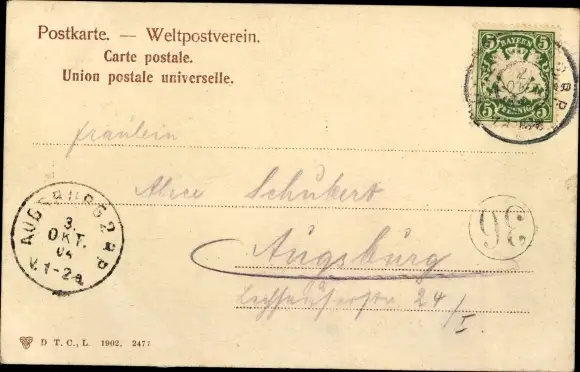 Postkarte. — Weltpostverein.
Carte postale.
Union postale universelle.
5 BAYERN 5
5 PFENNIG 5
Fräulein
Alice Schubert
Augsburg
24/I
36
AUGSBURG 2
3.
OKT.
04
V.1-2a
D T. C., L. 1902. 2477